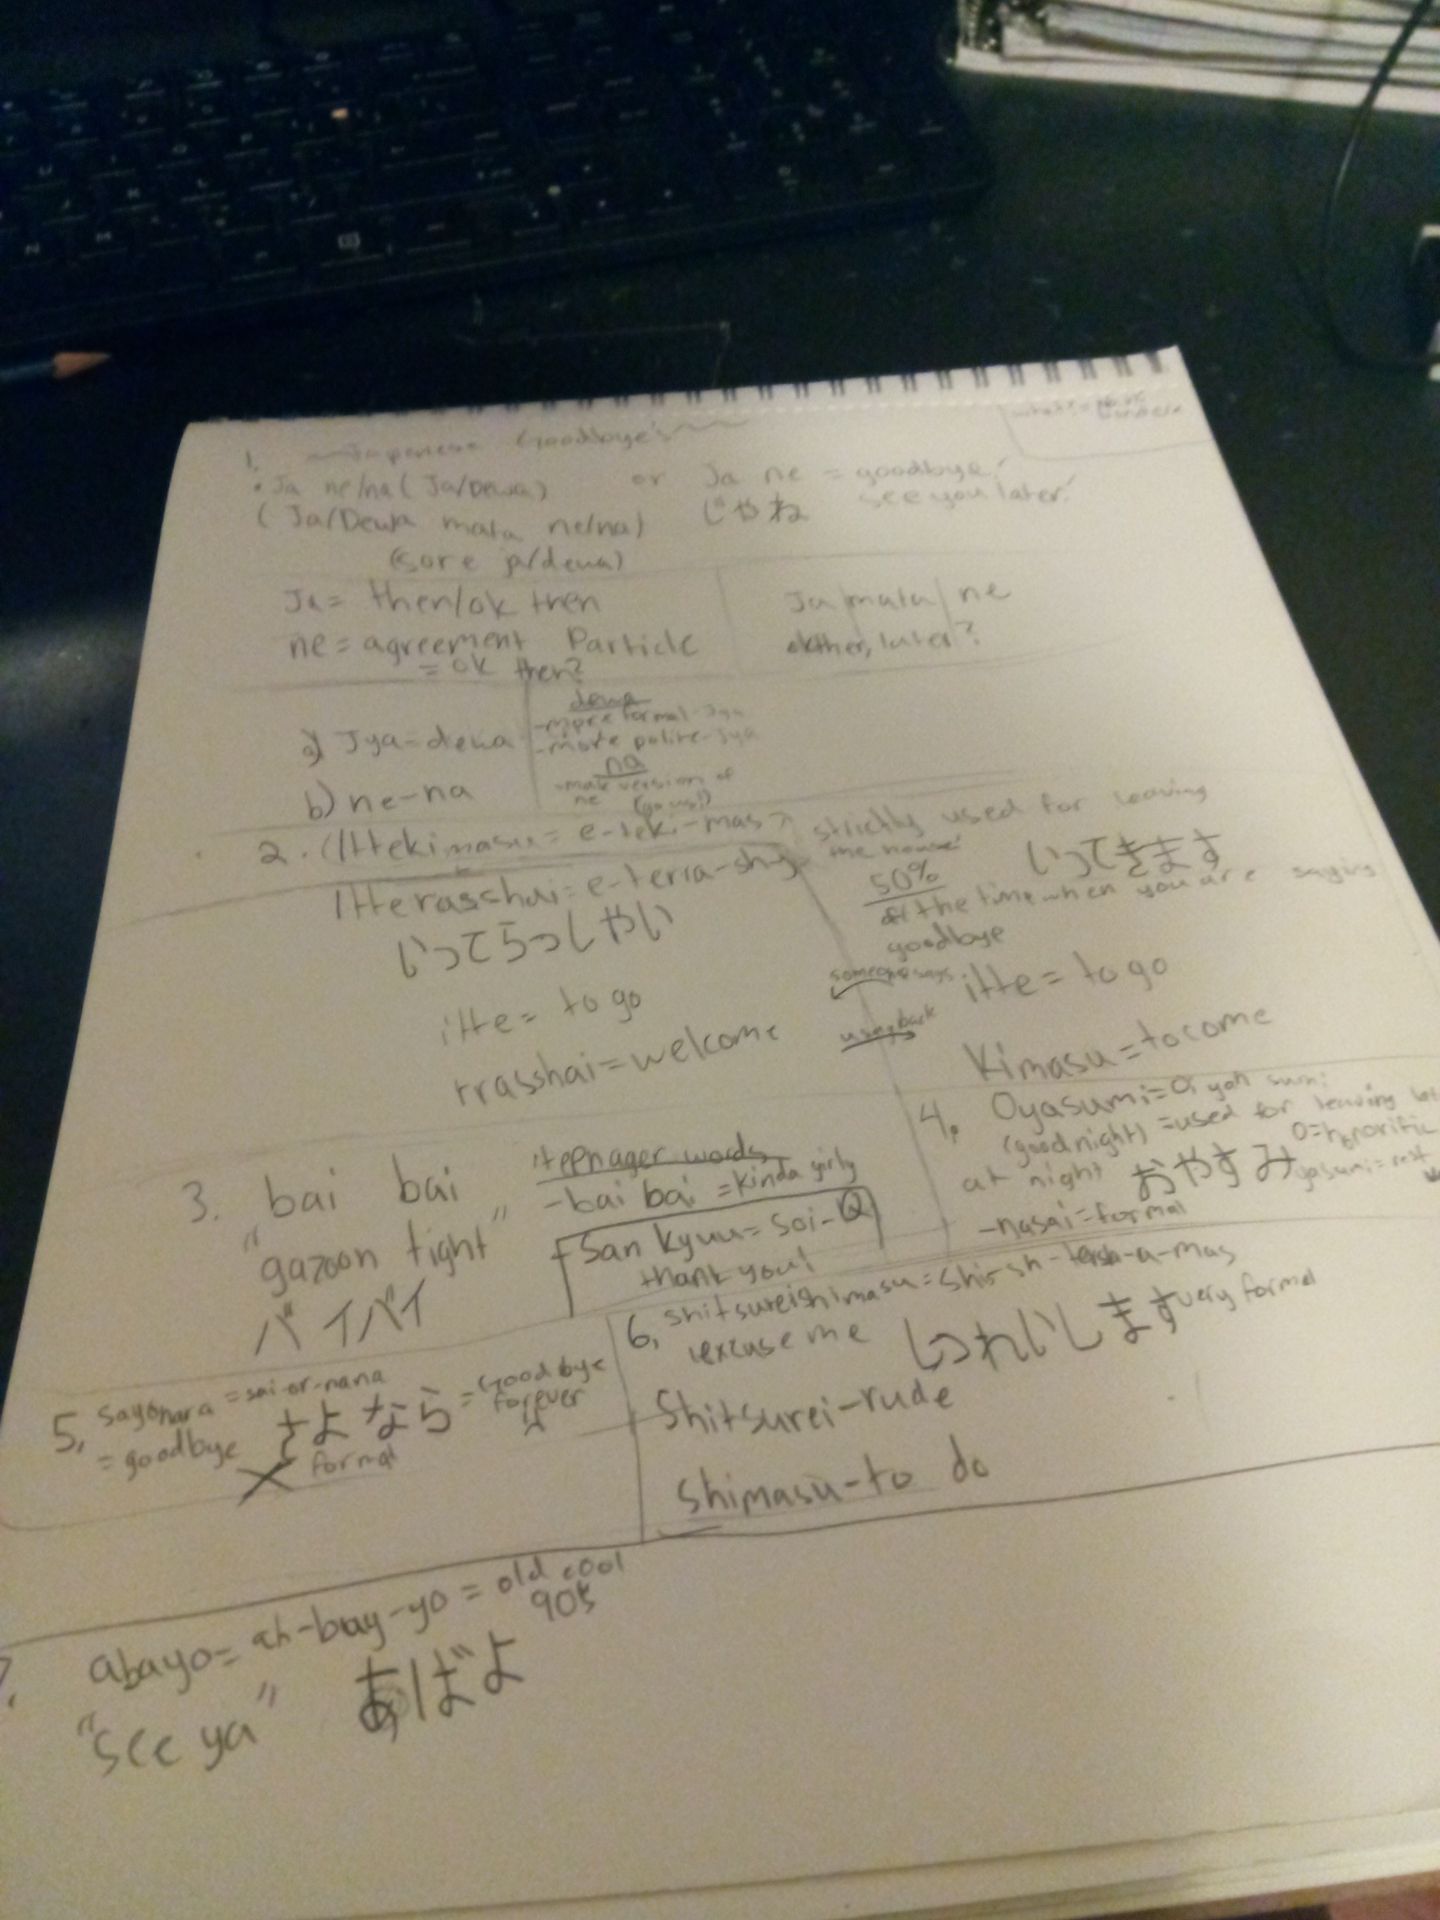 1. Japanese Goodbye's
• Ja ne/na (Ja/Dewa) or Ja ne = goodbye!
(Ja/Dewa mata ne/na) じゃね see you later!
(sore ja/dewa)
Ja = then/ok then
ne = agreement Particle
= ok then?
Ja/mata/ne
ok then, later?
a) Jya = dewa
b) ne - na
dewa
- more formal - Jya
- more polite - Jya
na
- male version of
ne
2. Ittekimasu = e-teki-mas → strictly used for leaving
the house!
いってきます
50%
of the time when you are saying
goodbye
itte = to go
Kimasu = to come
Itterasshai = e-terra-shy
いってらっしゃい
someone says
itte = to go
rrasshai = welcome
3. bai bai
"gazoon tight"
バイバイ
teenager words
- bai bai = kinda girly
San kyuu = soi-Q
thank you!
4. Oyasumi = yah sumi
(good night) = used for leaving
at night おやすみ
O = honorific
yasumi = rest
- nasai = formal
5. Sayonara = sai-or-nana
= goodbye さよなら = Goodbye
forever
formal
6. shitsureishimasu =
excuse me しつれいします very formal
Shitsurei - rude
Shimasu - to do
7. abayo = ah-bay-yo = old cool
90s
"See ya" あばよ